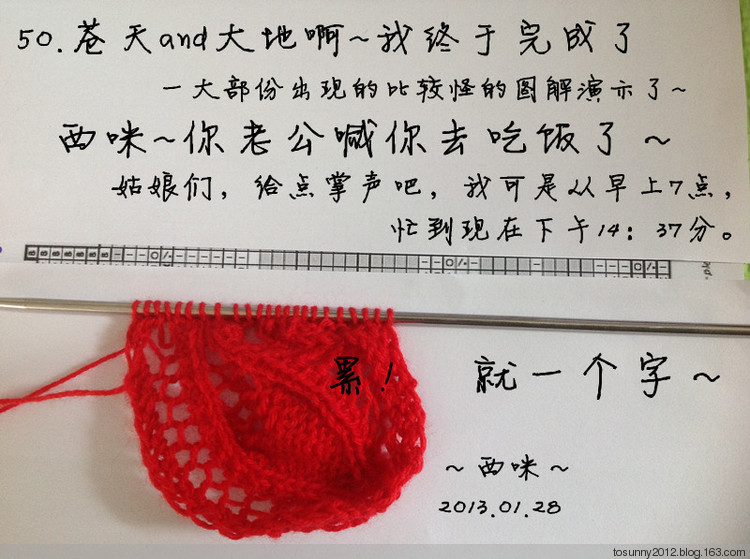 50.苍天and大地啊~我终于完成了
一大部份出现的比较怪的图解演示了~
西咪~你老公喊你去吃饭了~
姑娘们，给点掌声吧，我可是从早上7点，
忙到现在下午14：37分。
累！ 就一个字~
~西咪~
2013.01.28
tosunny2012.blog.163.com